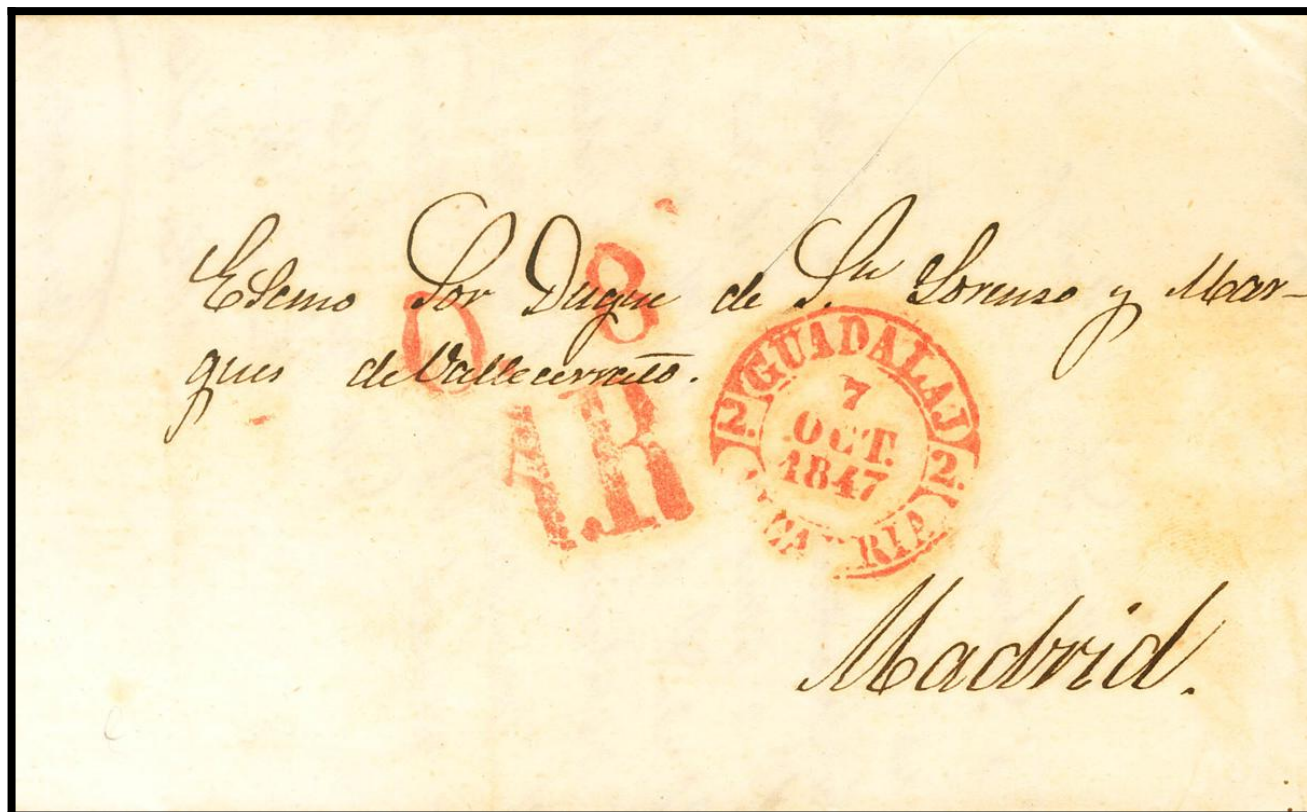 Escmo Sor Duque de Sn Lorenzo y Mar-
ques de Vallecerrato.
O. 8
A.R
GUADALAJ
2. 2.
7
OCT.
1847
Madrid.